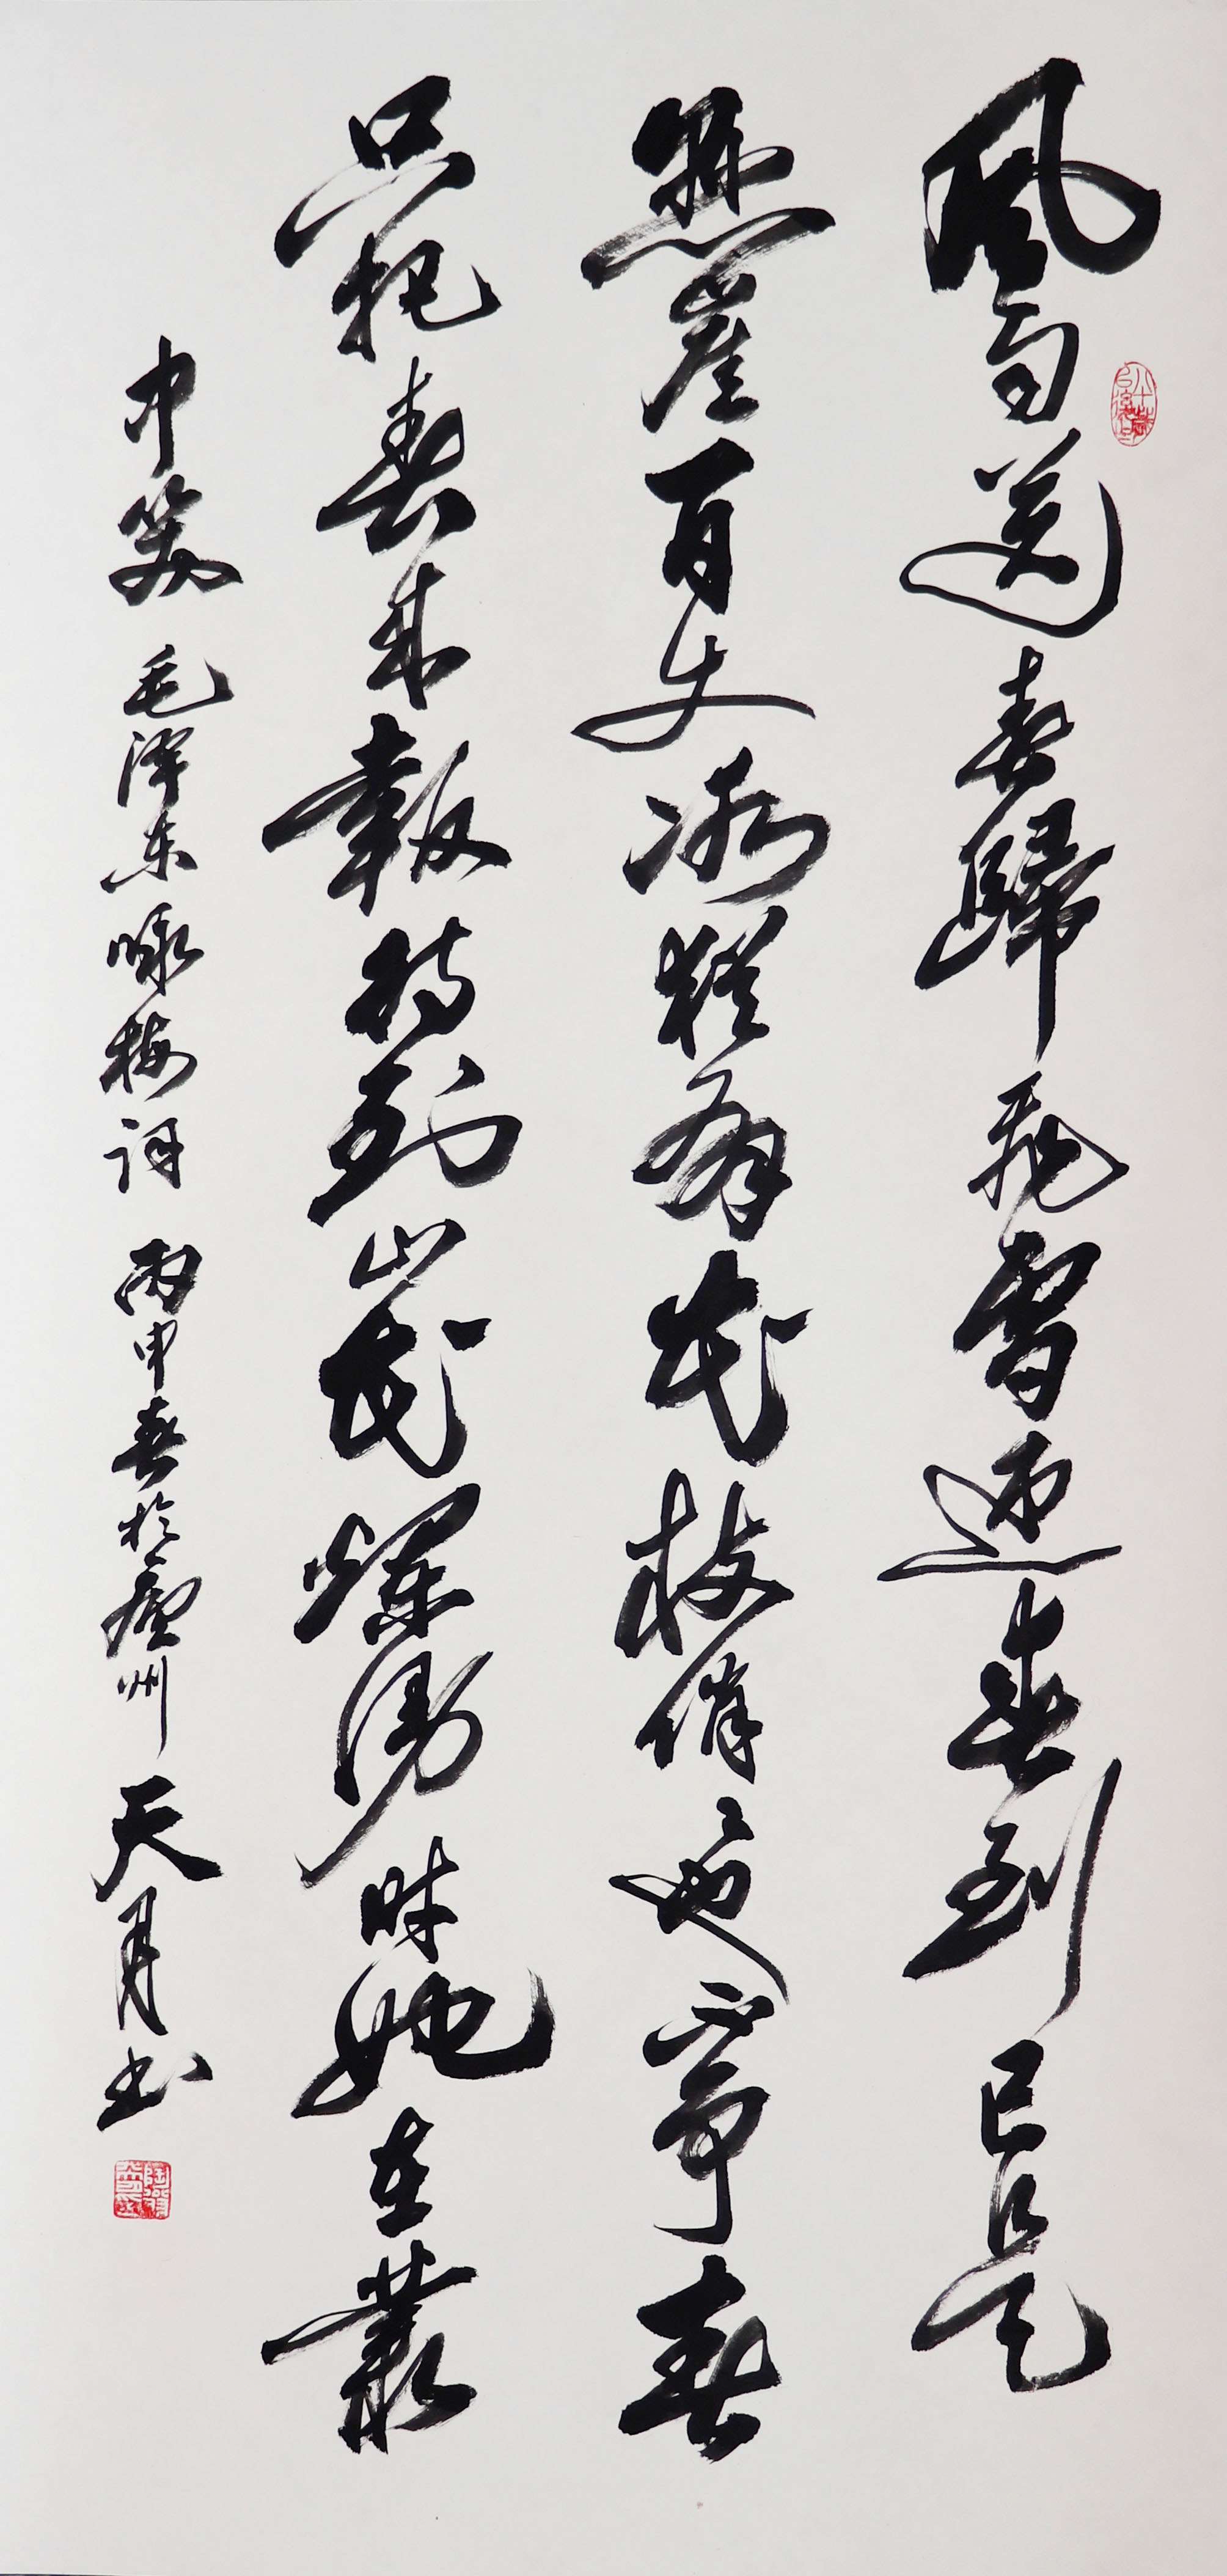 風雨送春歸飛雪迎春到已是
懸崖百丈冰猶有花枝俏〻也不爭春
只把春來報待到山花爛漫時她在叢
中笑 毛泽东咏梅词 丙申春於廣州 天月书